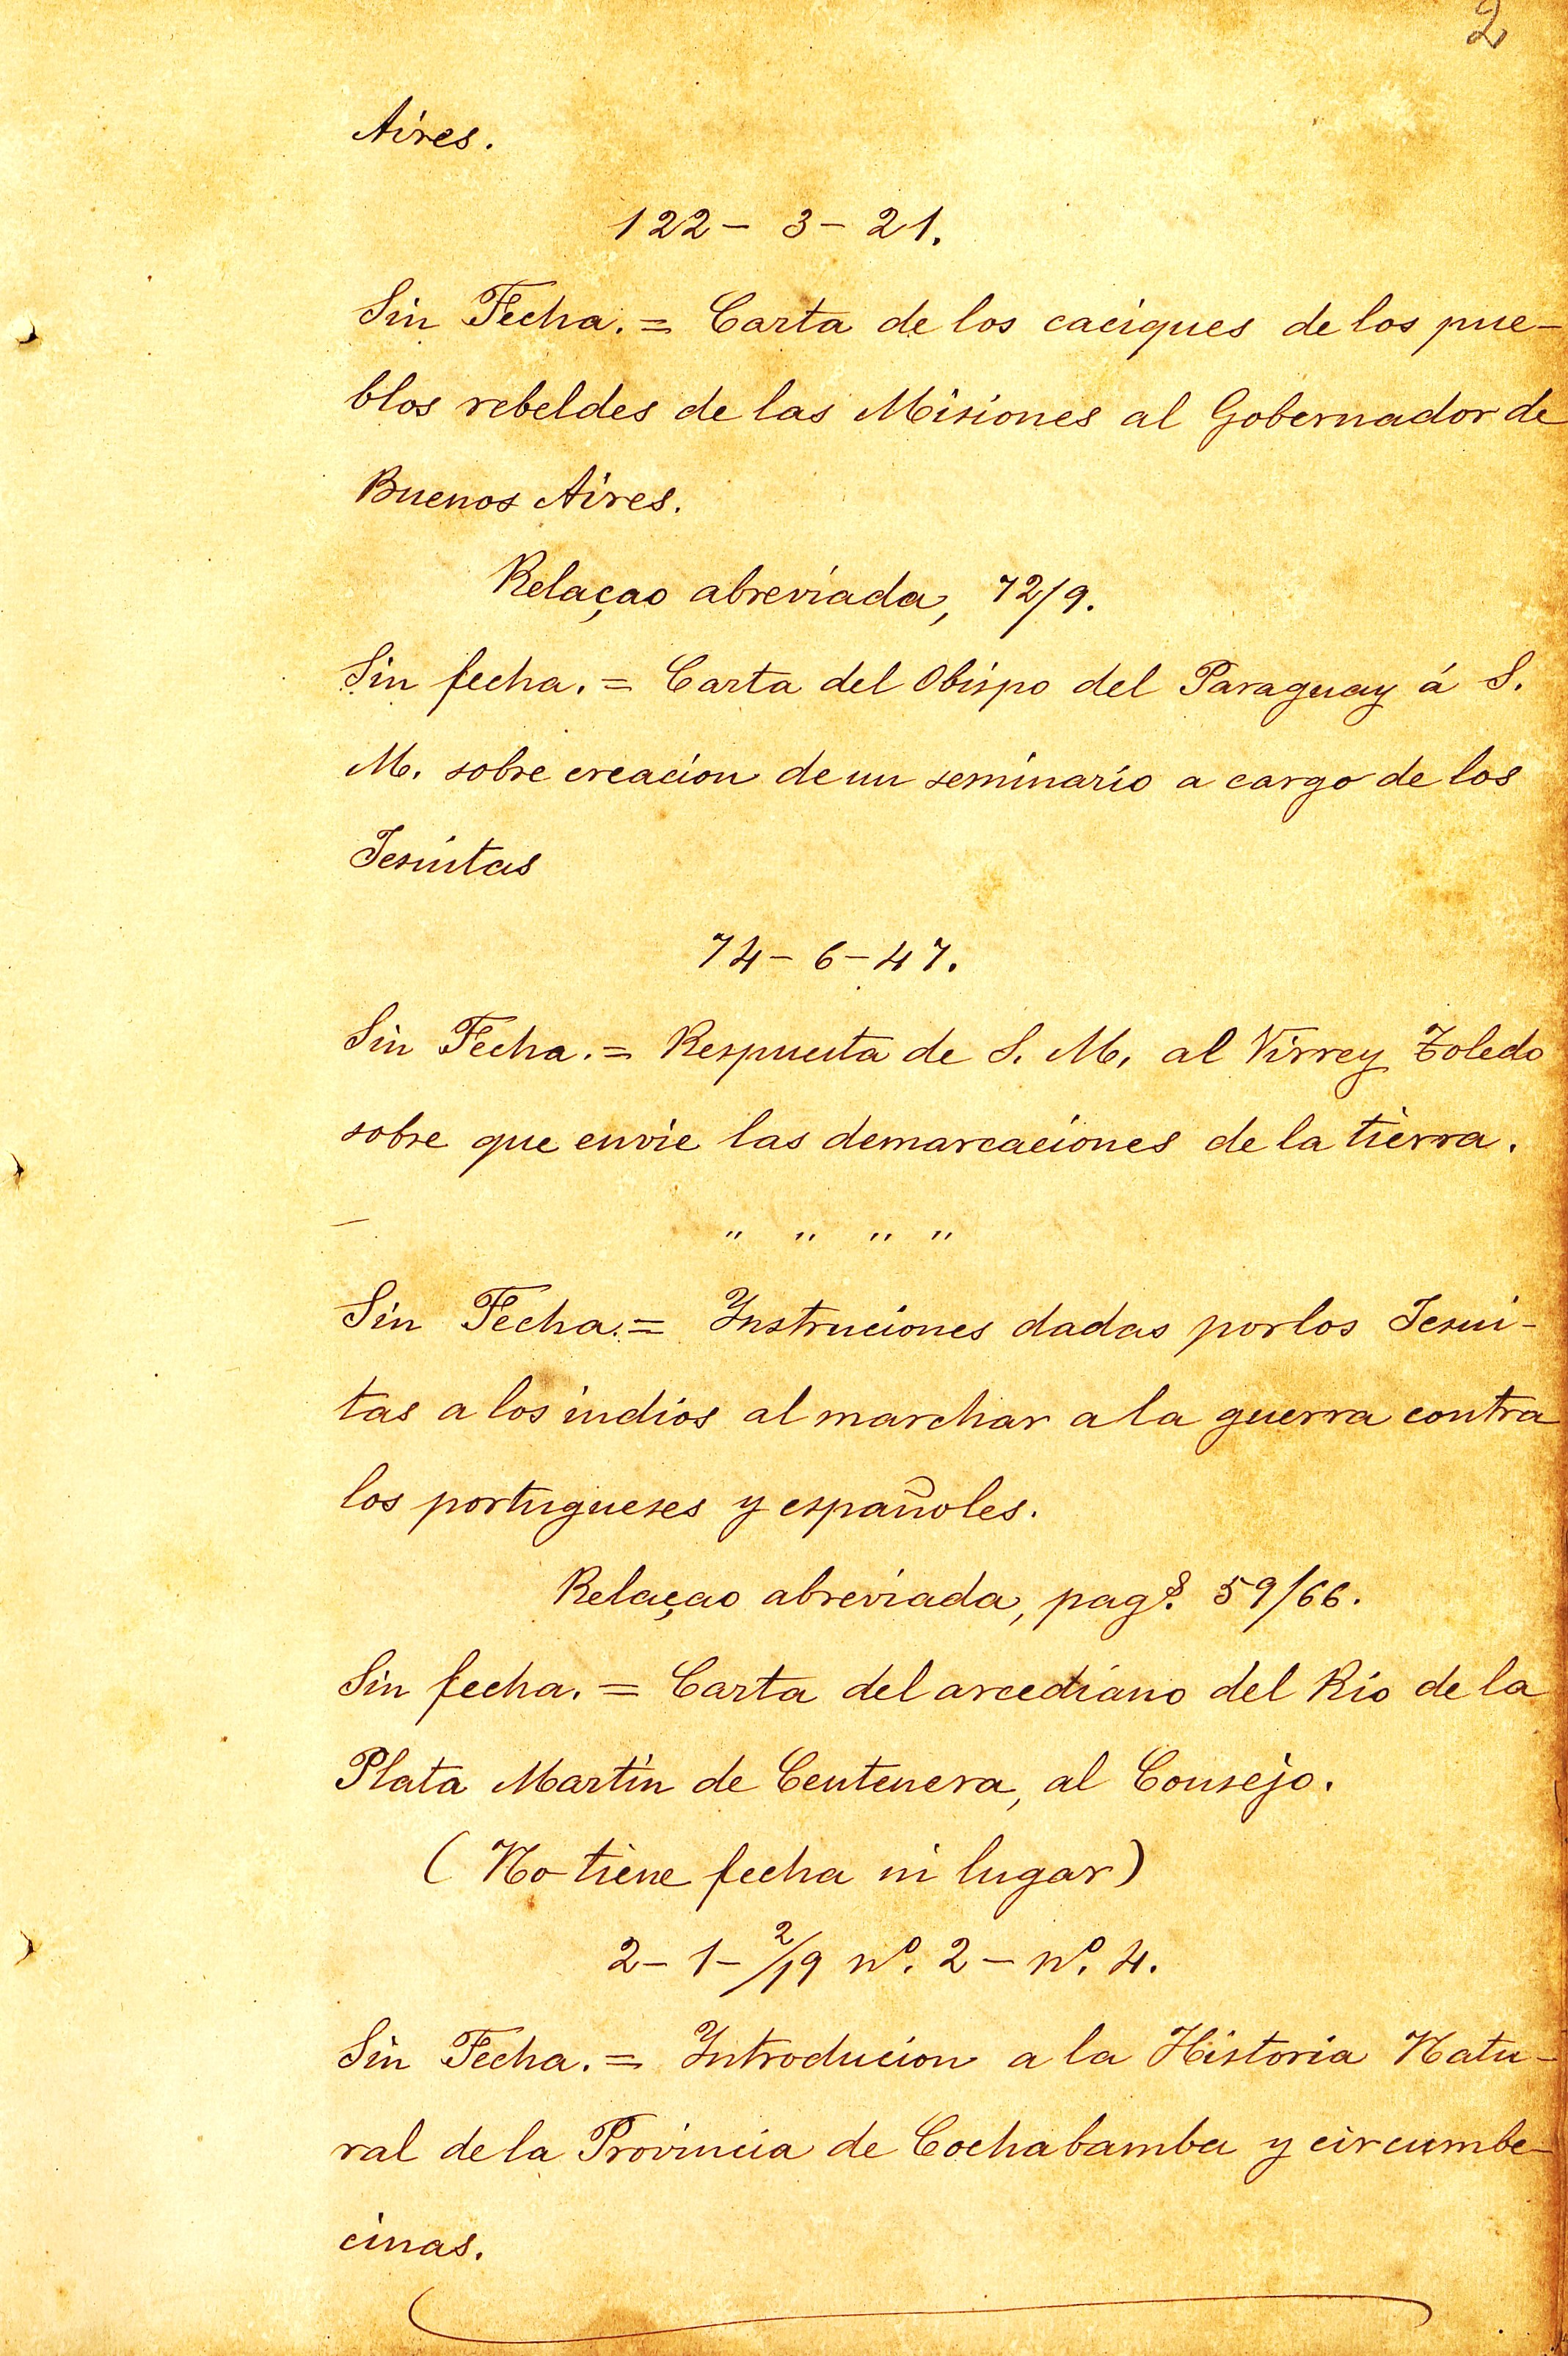 2
Aires.
122 - 3 - 21.
Sin Fecha. = Carta de los caciques de los pue-
blos rebeldes de las Misiones al Gobernador de
Buenos Aires.
Relaçao abreviada, 72/9.
Sin fecha. = Carta del Obispo del Paraguay á S.
M. sobre creacion de un seminario a cargo de los
Jesuitas
74 - 6 - 47.
Sin Fecha. = Respuesta de S. M. al Virrey Toledo
sobre que envie las demarcaciones de la tierra.
" " " "
Sin Fecha. = Instruciones dadas por los Jesui-
tas a los indios al marchar a la guerra contra
los portugueses y españoles.
Relaçao abreviada, pag.s 59/66.
Sin fecha. = Carta del arcediano del Rio de la
Plata Martin de Centenera, al Consejo.
(No tiene fecha ni lugar)
2 - 1 - 2/19 nº. 2 - nº. 4.
Sin Fecha. = Introducion a la Historia Natu-
ral de la Provincia de Cochabamba y circumbe-
cinas.